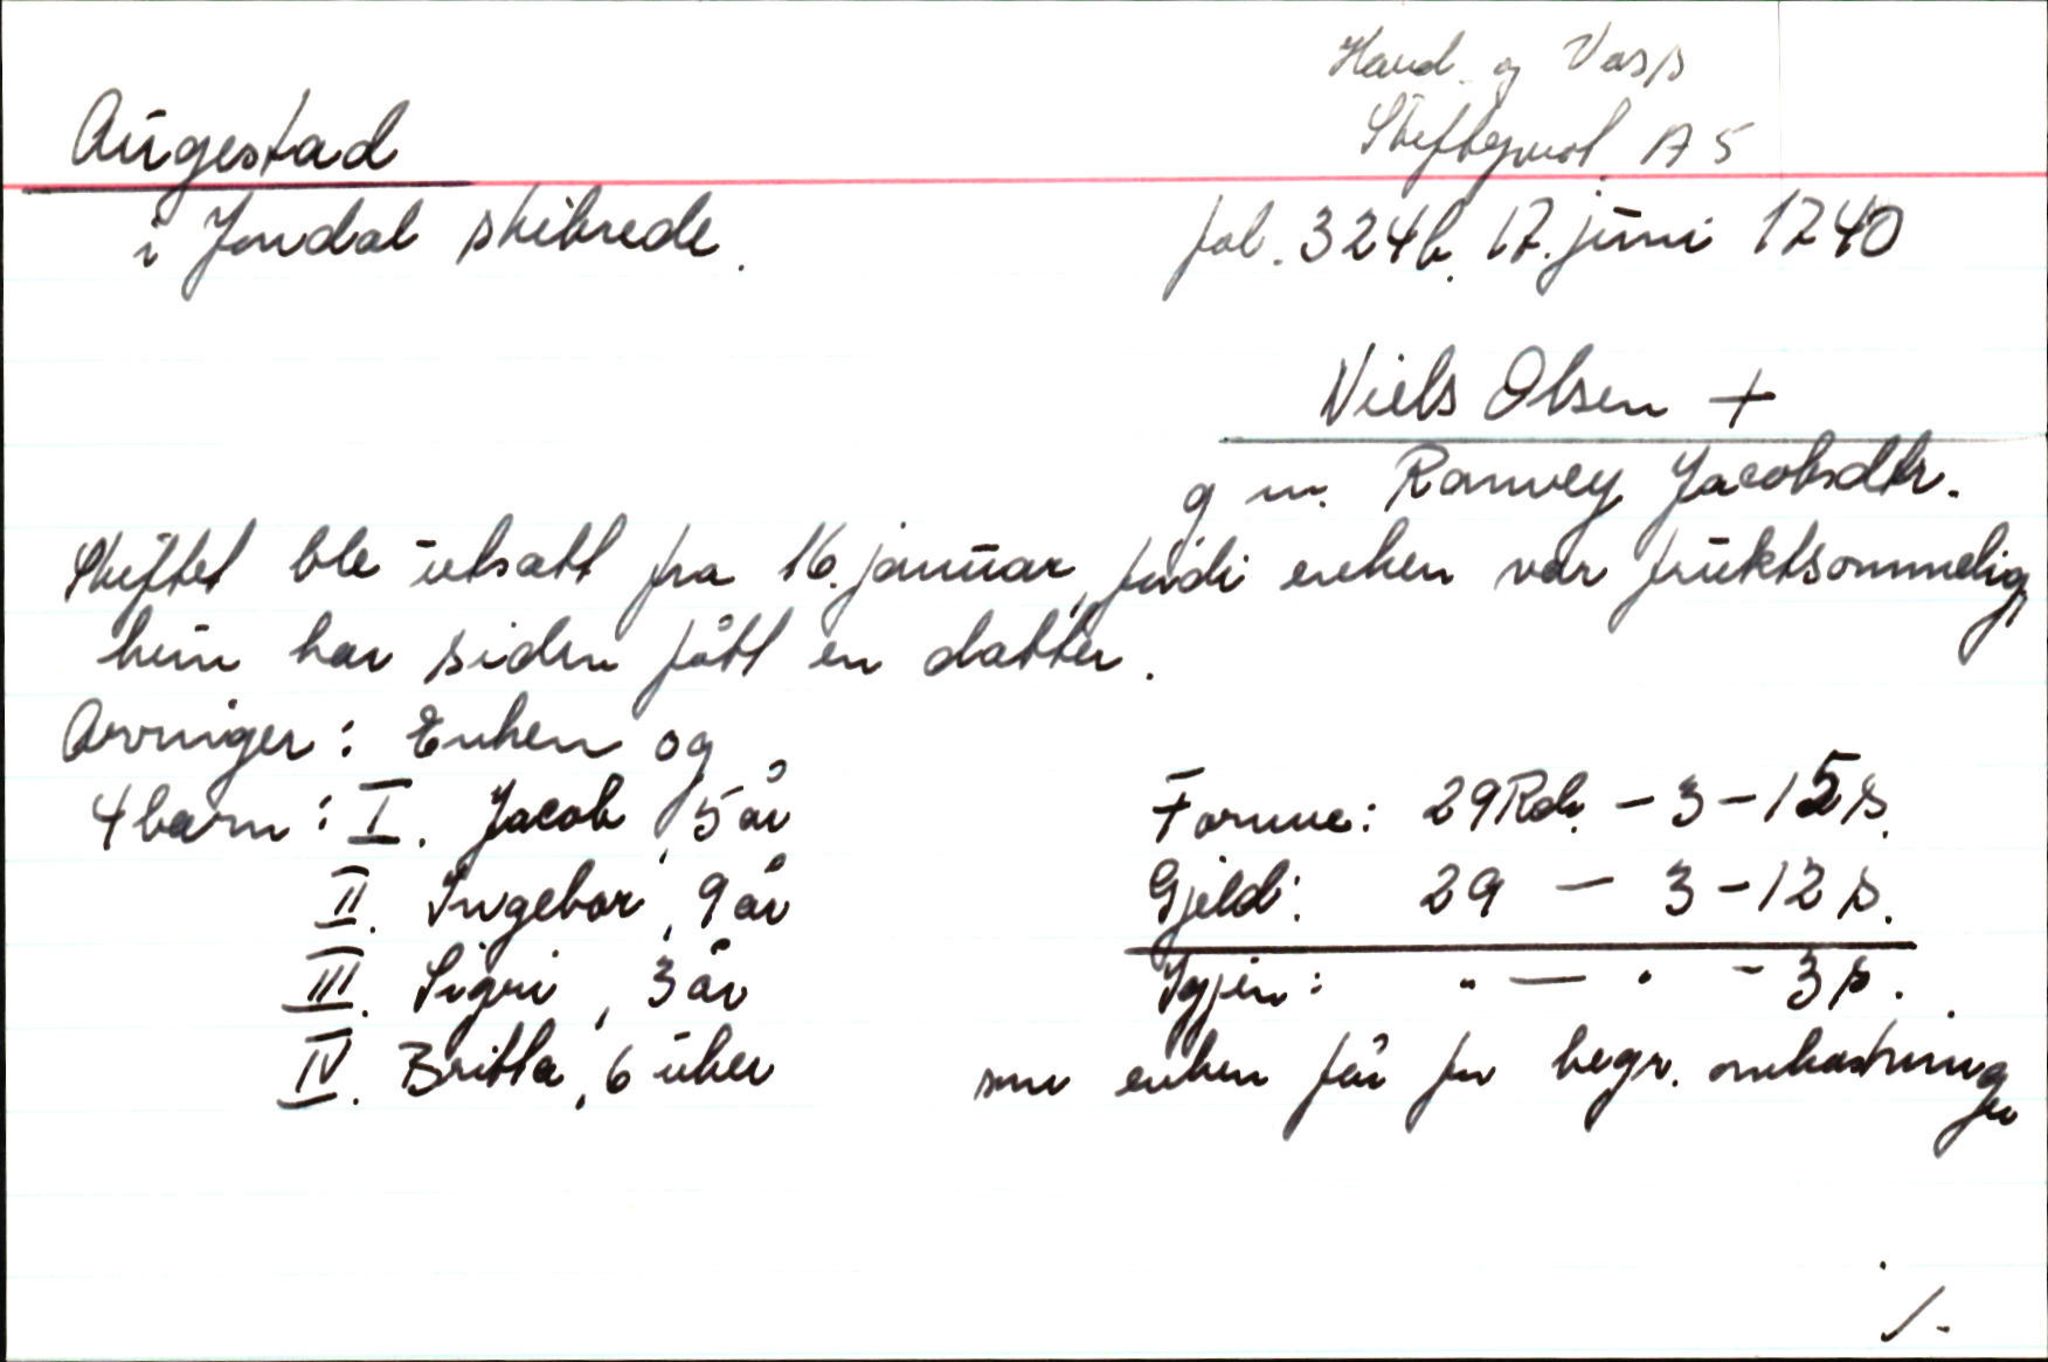 Hard. og Voss
Skifteprot A 5
Augestad
i Jondal skibrede.
fol. 324b. 17. juni 1740
Niels Olsen +
g m. Ranvey Jacobsdtr.
Skiftet ble utsatt fra 16. januar, fordi enken var fruktsommelig,
hun har siden fått en datter.
Arvinger: Enken og
4 barn: I. Jacob, 5 år
II. Ingebor, 9 år
III. Sigri, 3 år
IV. Britta, 6 uker
Formue: 29 Rdr. - 3 - 15 s.
Gjeld: 29 - 3 - 12 s.
Igjen: " - " - 3 s.
som enken får for begr. omkostninger
./.